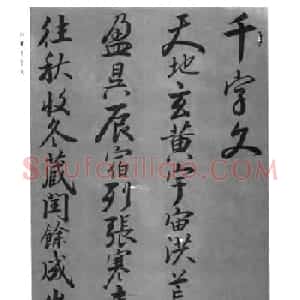 千字文
天地玄黄宇宙洪
盈昃辰宿列張寒
往秋收冬藏閏餘成
Shufaziliao.com